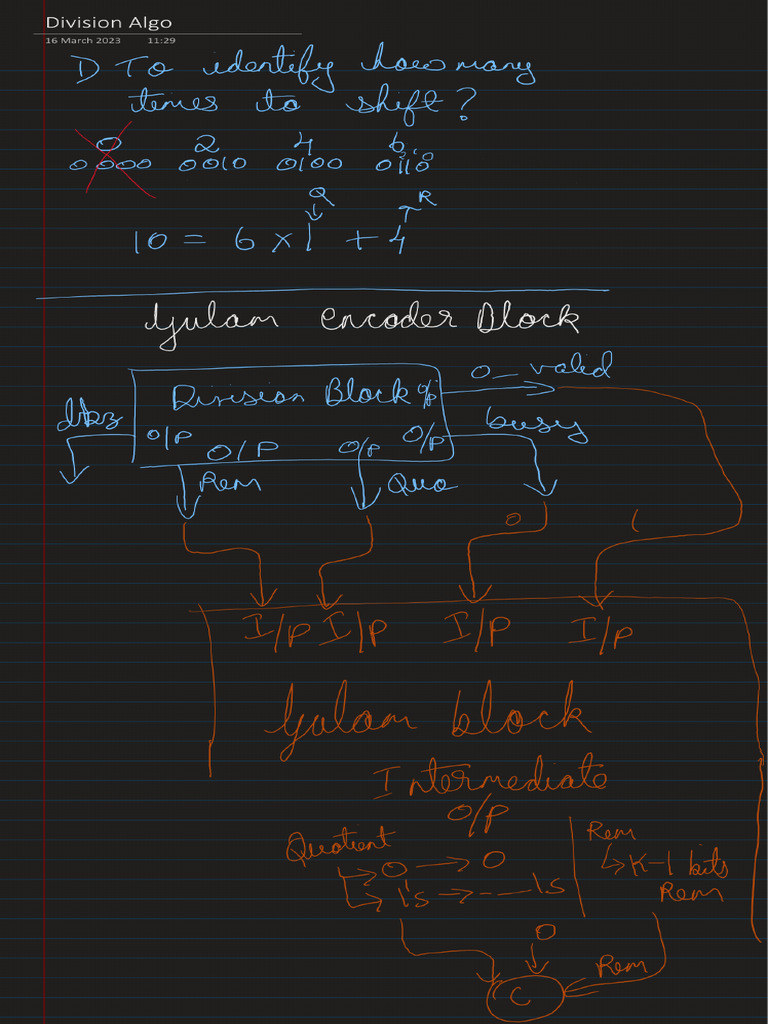 Division Algo
16 March 2023 11:29
D To identify how many
times to shift?
0 2 4 6
0000 0010 0100 0110
Q R
10 = 6 × 1 + 4
Gulam encoder Block
Division Block O/P O_valid
dbz O/P O/P O/P O/P busy
Rem Quo
0 1
I/P I/P I/P I/P
Gulam block
Intermediate
O/P
Quotient
0 → 0
1's → - - - 1s
Rem
↳ K-1 bits
Rem
0
Rem
C